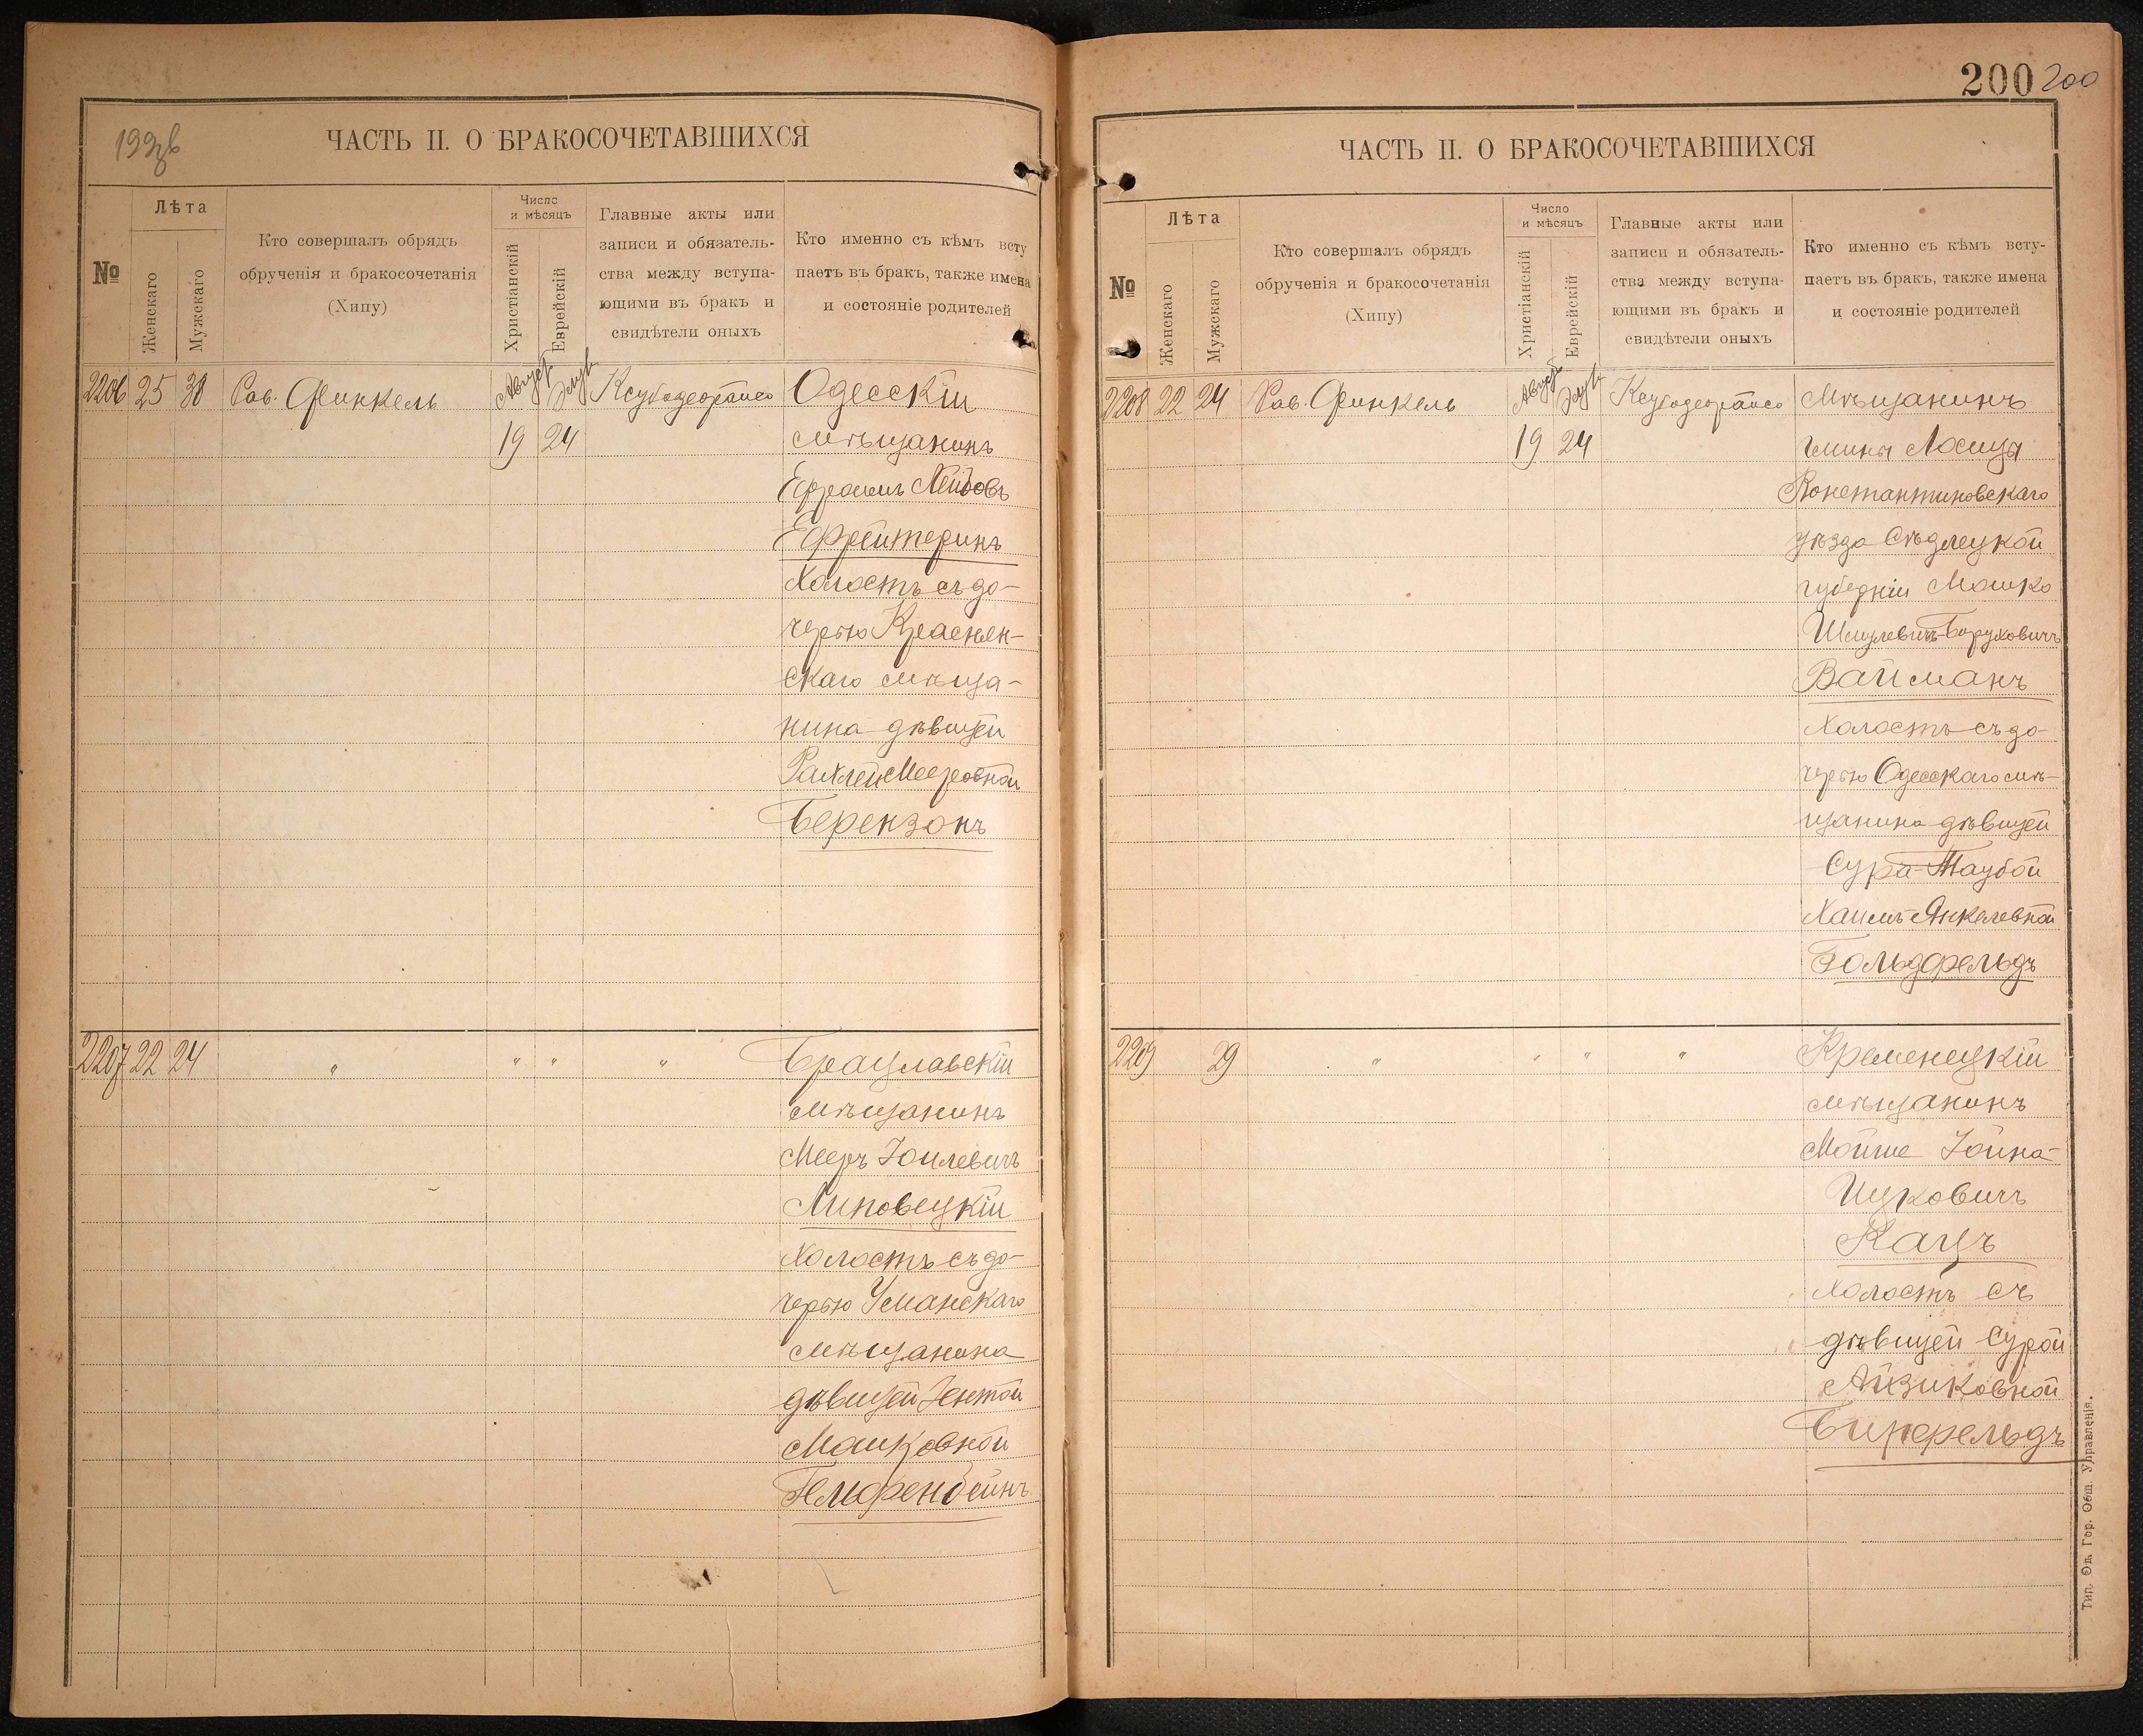 199об
ЧАСТЬ II. О БРАКОСОЧЕТАВШИХСЯ
№
Лѣта
Женскаго
Мужскаго
Кто совершалъ обрядъ
обрученія и бракосочетанія
(Хипу)
Число
и мѣсяцъ
Христіанскій
Еврейскій
Главные акты или
записи и обязатель-
ства между вступа-
ющими въ бракъ и
свидѣтели оныхъ
Кто именно съ кѣмъ всту
паетъ въ бракъ, также имена
и состояніе родителей
2206 25 30 Рав. Финкель Август Элул Ксубодеораисо Одесскій
19 24 мѣщанинъ
Ефраимъ Лейбовъ
Ефрейтеринъ
Холостъ съ до-
черью Краснян-
скаго мѣща-
нина дѣвицей
Рахлей Мееровной
Берензонъ
2207 22 24 " " " " Брацлавскій
мѣщанинъ
Мееръ Іоилевичъ
Липовецкій
Холостъ съ до-
черью Уманскаго
мѣщанина
дѣвицей Іентой
Мошковной
Гельфенбейнъ
200 200
ЧАСТЬ II. О БРАКОСОЧЕТАВШИХСЯ
№
Лѣта
Женскаго
Мужскаго
Кто совершалъ обрядъ
обрученія и бракосочетанія
(Хипу)
Число
и мѣсяцъ
Христіанскій
Еврейскій
Главные акты или
записи и обязатель-
ства между вступа-
ющими въ бракъ и
свидѣтели оныхъ
Кто именно съ кѣмъ всту-
паетъ въ бракъ, также имена
и состояніе родителей
2208 22 24 Рав. Финкель Август Элул Ксубодеораисо Мѣщанинъ
19 24 гмины Лосицы
Константиновскаго
уѣзда Сѣдлецкой
губерніи Мошко
Шмулевичъ-Боруховичъ
Вайсманъ
Холостъ съ до-
черью Одесскаго мѣ-
щанина дѣвицей
Сура-Таубой
Хаимъ-Янкелевной
Гольдфельдъ
2209 29 " " " " Кременецкій
мѣщанинъ
Мойше Іойна-
Ицковичъ
Кацъ
Холостъ съ
дѣвицей Сурой
Айзиковной
Бирфельдъ
Тип. Од. Гор. Общ. Управленія.